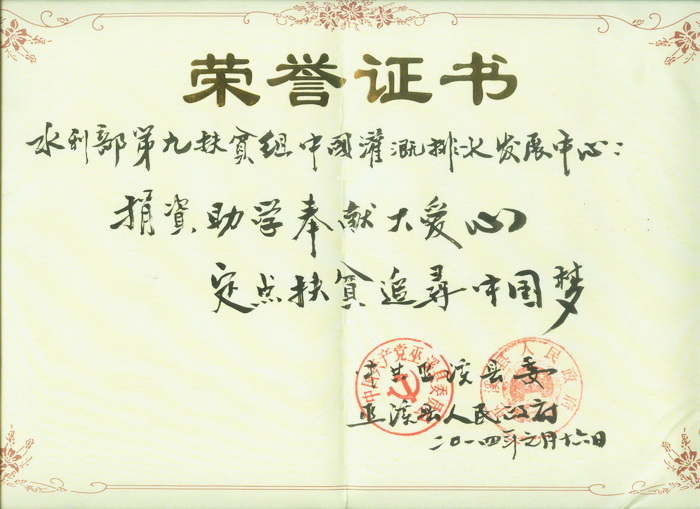 荣誉证书
水利部第九扶贫组中國灌溉排水发展中心：
捐資助学奉献大爱心
定点扶贫追尋中国梦
中共巫溪县委
巫溪县人民政府
二〇一四年元月十六日
中国共产党巫溪县委员会
巫溪县人民政府